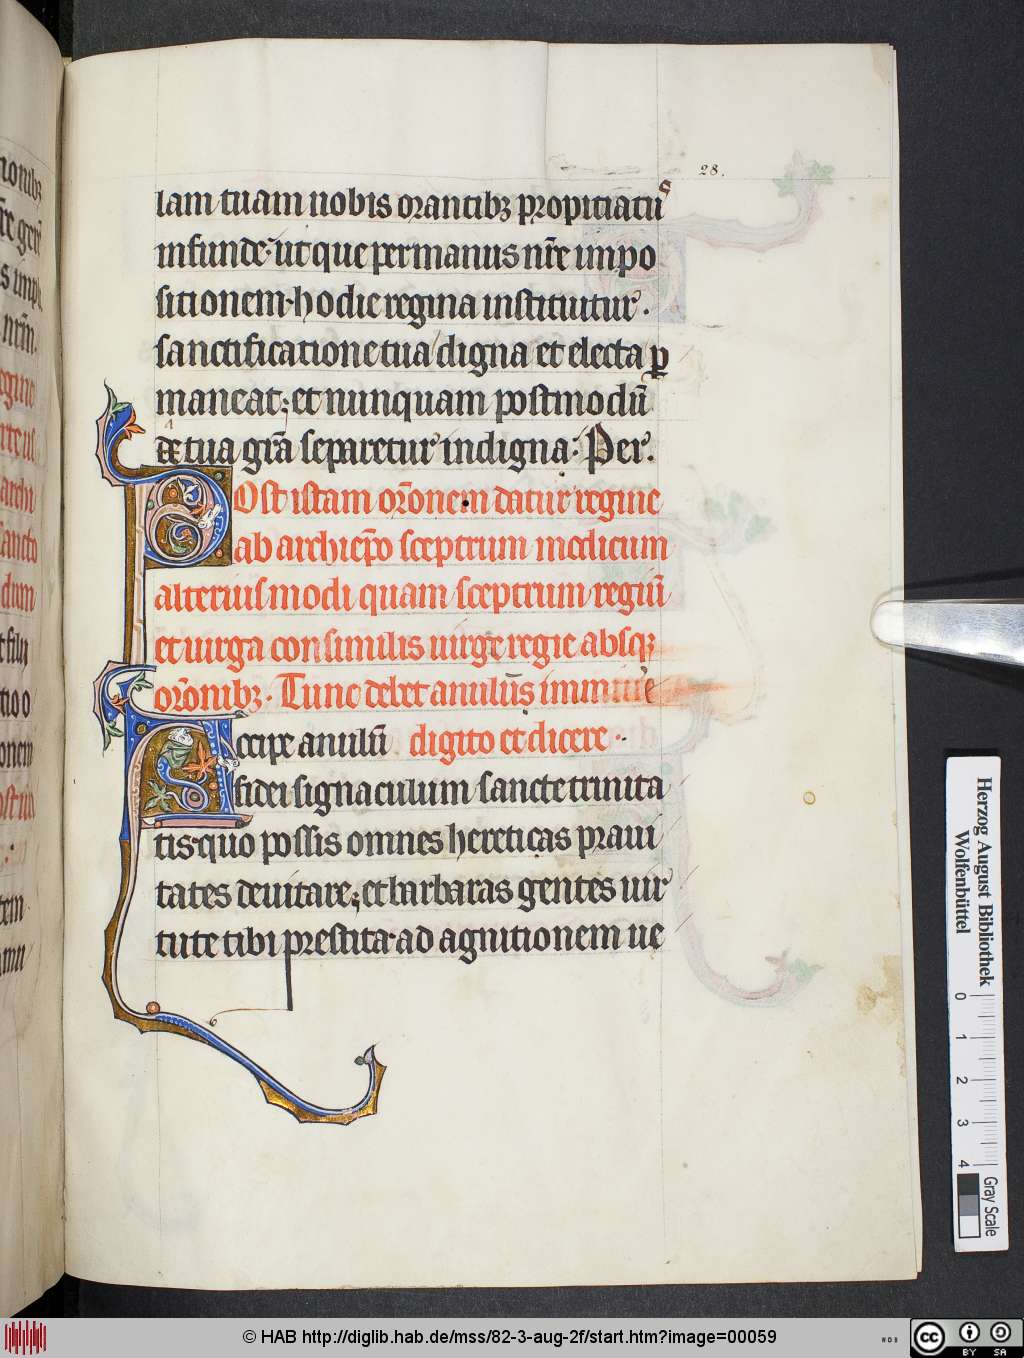 28.
lam tuam nobis orantibꝫ propitiatꝰ
infunde· ut que per manus nr̄e impo
sitionem· hodie regina instituitur·
sanctificatione tua digna et electa ꝑ
maneat; et nunquam postmodū
de tua gr̄a separetur indigna· Per.
Post istam or̄onem datur regine
ab archiep̄o sceptrum modicum
alterius modi quam sceptrum regiū
et uirga consimilis uirge regie absqꝫ
or̄onibꝫ· Tunc debet anulus immitti
Accipe anulū digito et dicere··
fidei signaculum sancte trinita
tis· quo possis omnes hereticas praui
tates deuitare; et barbaras gentes uir
tute tibi prestita· ad agnitionem ue
Herzog August Bibliothek
Wolfenbüttel
0 1 2 3 4
Gray Scale
© HAB http://diglib.hab.de/mss/82-3-aug-2f/start.htm?image=00059
WDB
cc BY SA